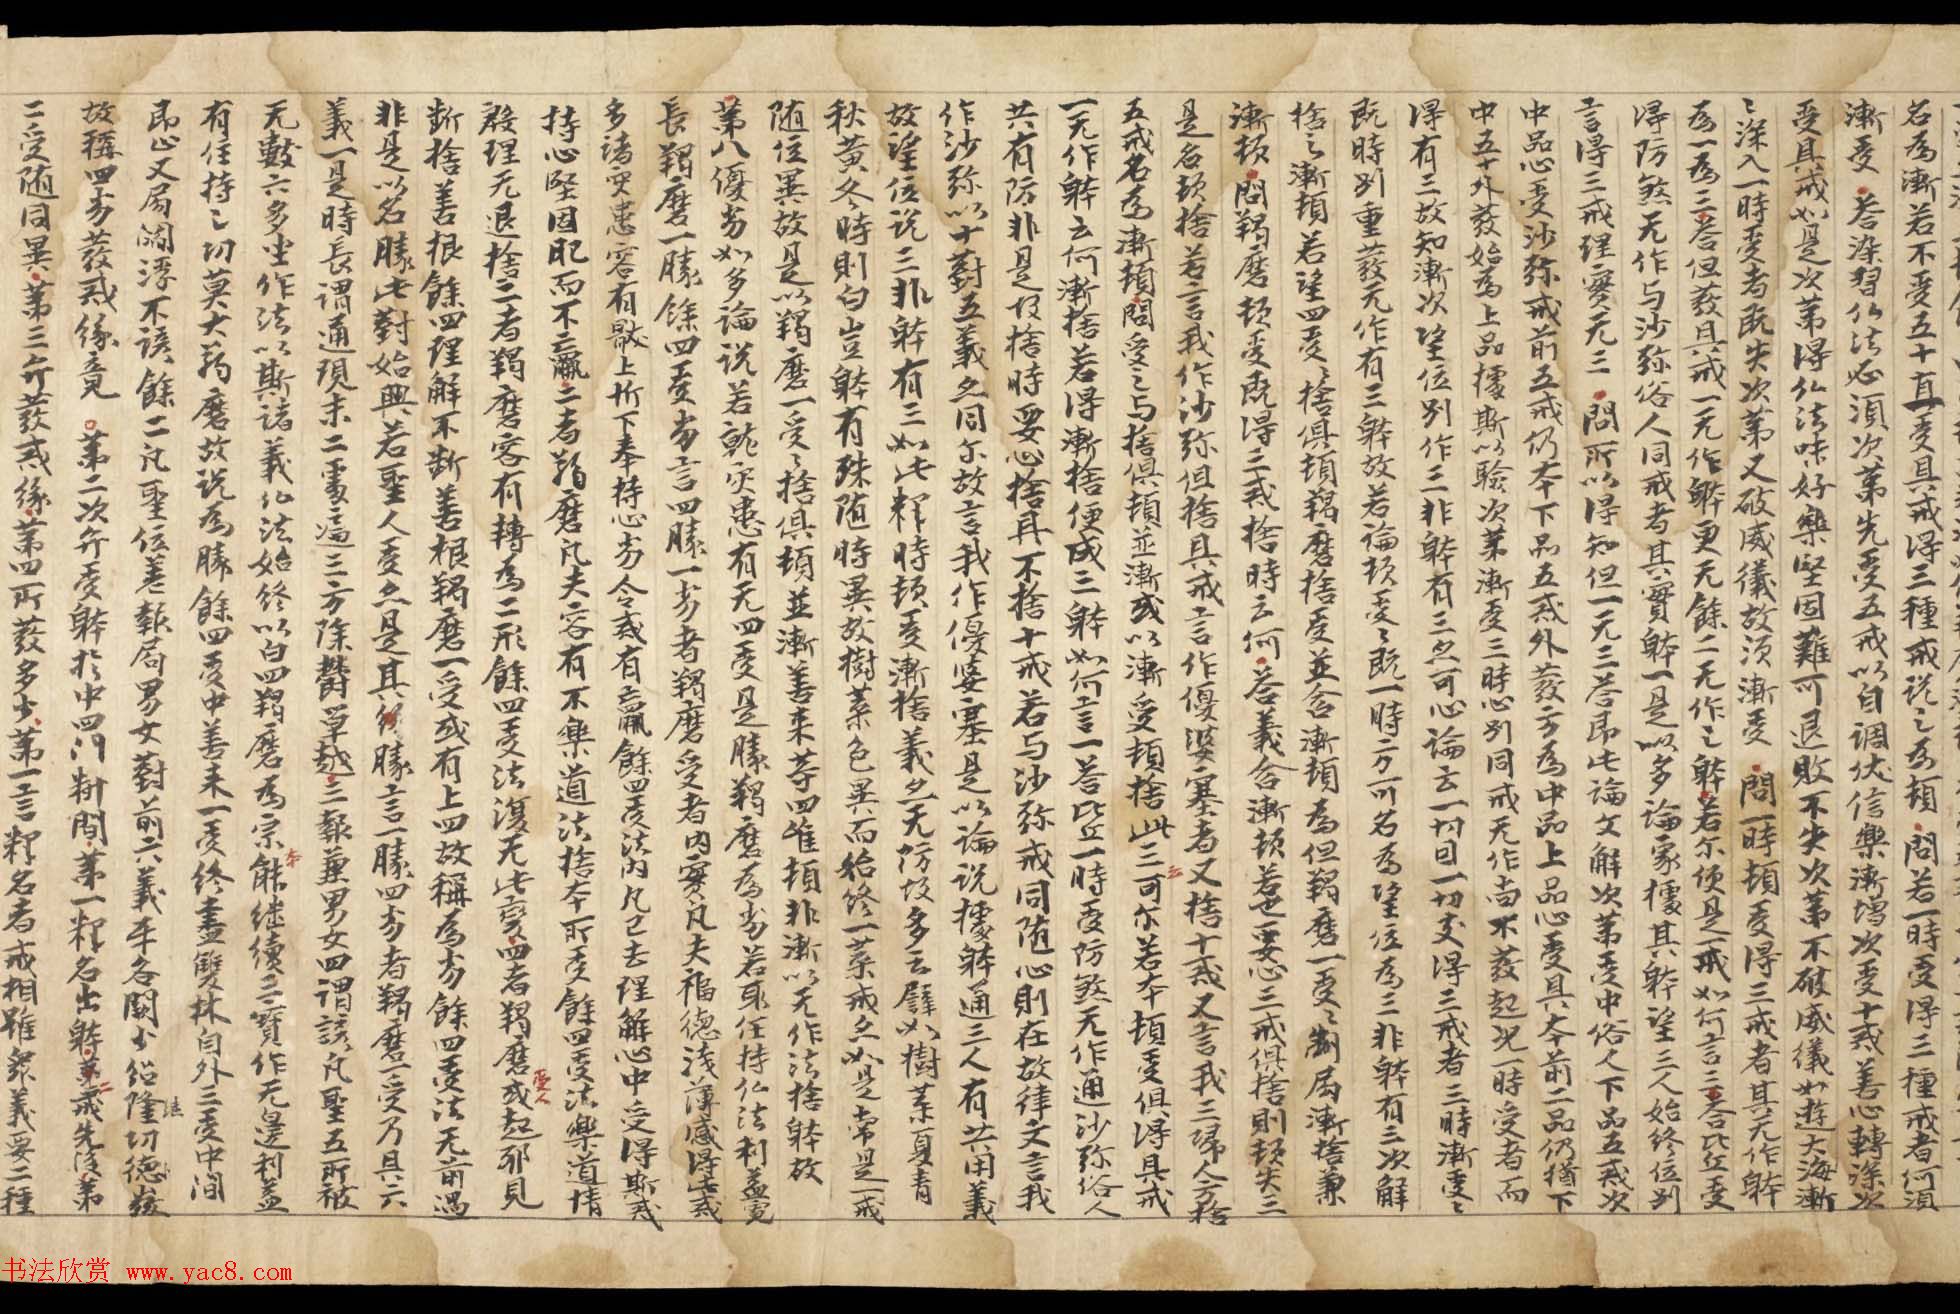 名為漸若不受五十直受具戒得三種戒說之為頓問若一時受得三種戒者何須
漸受答染習仏法必須次第先受五戒以自調伏信樂漸增次受十戒善心轉深次
受具戒如是次第得仏法味好樂堅固難可退敗不失次第不破威儀如遊大海漸
〻深入一時受者既失次第又破威儀故須漸受問一時頓受得三戒者其无作躰
為一為三答但發具戒一无作躰更无餘二无作之躰若尒便是一戒如何言三答比丘受
得防煞无作与沙弥俗人同戒者其實躰一是以多論家據其躰望三人始終位別
言得三戒理實无三問所以得知但一无三答即此論文解次第受中俗人下品五戒次
中品心受沙弥戒前五戒仍本下品五戒外發方為中品上品心受具本前二品仍猶下
中五十外發始為上品據斯以驗次第漸受三時心別同戒无作尚不發起況一時受者而
得有三故知漸次望位別作三非躰有三亦可心論云一切目一切支得三戒者三時漸受〻
既時別重發无作有三躰故若論頓受〻既一時方可名為望位為三非躰有三次解
捨之漸頓若望四受〻捨俱頓羯磨捨受並含漸頓為但羯磨一受〻制局漸捨兼
漸頓問羯磨頓受既得三戒捨時云何答義含漸頓若也要心三戒俱捨則頓失三
是名頓捨若言我作沙弥但捨具戒言作優婆塞者又捨十戒又言我三歸人方捨
五戒名為漸頓問受之与捨俱頓並漸或以漸受頓捨此三可尒若本頓受俱得具戒
一无作躰云何漸捨若得漸捨便成三躰如何言一答比丘一時受防煞无作通沙弥俗人
共有防非是故捨時要心捨具不捨十戒若与沙弥戒同随心則在故律文言我
作沙弥以十對五義亦同尒故言我作優婆塞是以論說據躰通三人有共用義
故望位說三非躰有三如此釋時頓受漸捨義亦无防故多云譬如樹葉夏青
秋黃冬時則白豈躰有殊随時異故樹葉色異而始終一葉戒亦如是常是一戒
随位異故是以羯磨一受〻捨俱頓並漸善来等四唯頓非漸以无作法捨躰故
第八優劣如多論說若就災患有无四受是勝羯磨為劣若取住持仏法利益寬
長羯磨一勝餘四受劣言四勝一劣者羯磨受者内實凡夫福德淺薄感得此戒
多諸災患容有毀上折下奉持心劣令戒有羸餘四受法内凡已去理解心中受得斯戒
持心堅固肥而不羸二者羯磨凡夫容有不樂道法捨本所受餘四受法樂道情
殷理无退捨三者羯磨容有轉為二形餘四受法復无此變四者羯磨受人或起邪見
断捨善根餘四理解不断善根羯磨一受或有上四故稱為劣餘四受法无前過
非是以名勝此對始興若聖人受亦是其勝言一勝四劣者羯磨一受乃具六
義一是時長謂通現未二處遍三方除欝單越三報兼男女四謂該凡聖五所被
无數六多坐作法以斯諸義仏法始終以白四羯磨為宗本能継續三寶作无邊利益
有住持之切莫大羯磨故說為勝餘四受中善来一受終盡雙林自外三受中間
即止又局閻浮不該餘二凡聖位差報局男女對前六義率各闕少紹隆切德發
故稱四劣發戒緣竟第二次弁受躰於中四門料簡第一釋名出躰第二戒先後第
二受随同異第三弁發戒緣第四所發多少第一言釋名者戒相雖眾義要二種
书法欣赏 www.yac8.com